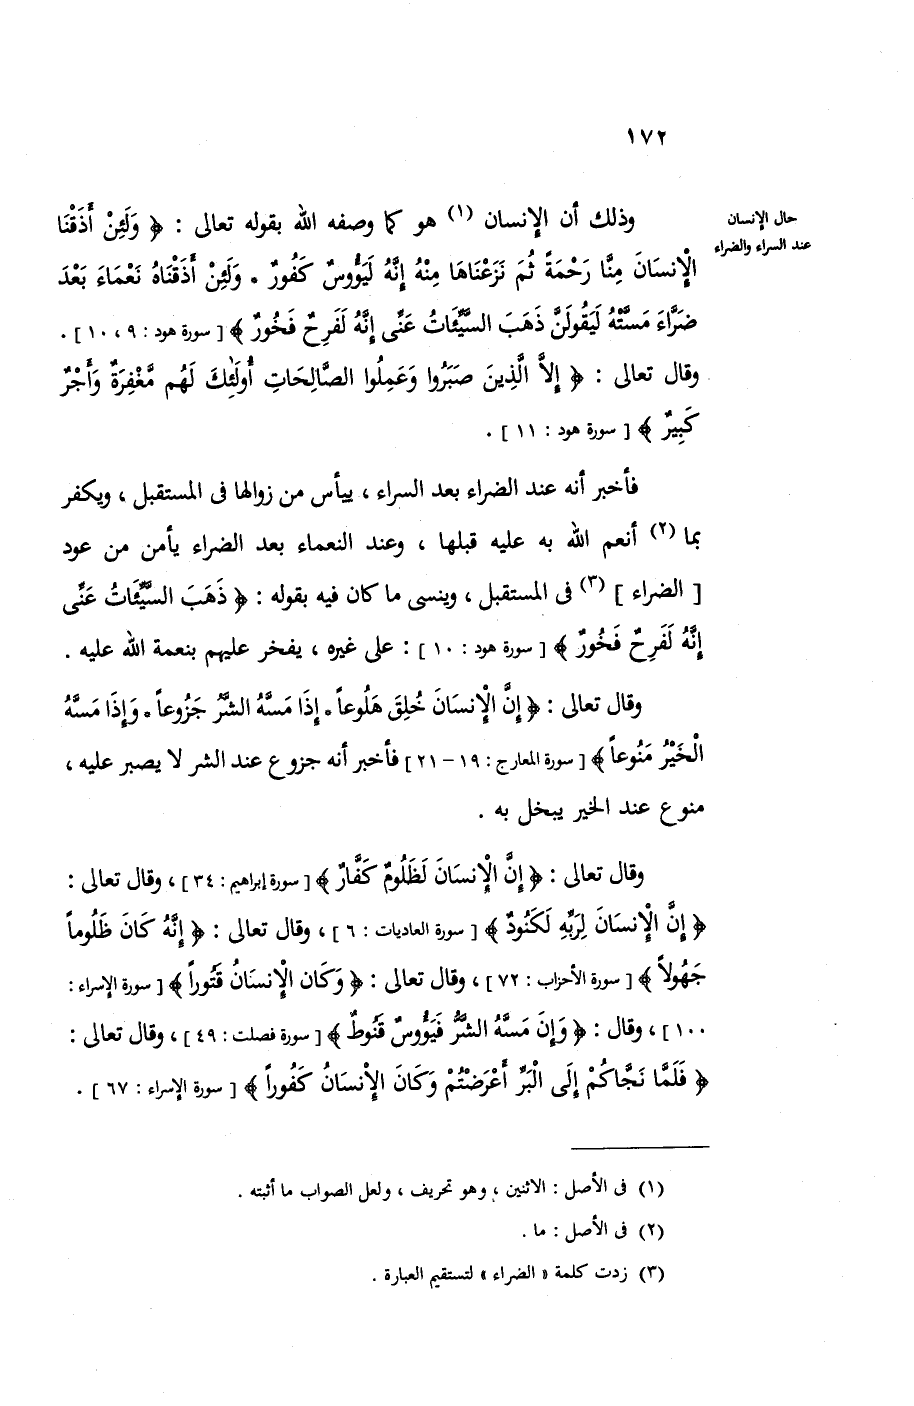 ١٧٢
حال الإنسان
عند السراء والضراء
وذلك أن الإنسان (١) هو كما وصفه الله بقوله تعالى : ﴿ وَلَئِنْ أَذَقْنَا
الْإِنسَانَ مِنَّا رَحْمَةً ثُمَّ نَزَعْنَاهَا مِنْهُ إِنَّهُ لَيَؤُوسٌ كَفُورٌ . وَلَئِنْ أَذَقْنَاهُ نَعْمَاءَ بَعْدَ
ضَرَّاءَ مَسَّتْهُ لَيَقُولَنَّ ذَهَبَ السَّيِّئَاتُ عَنِّى إِنَّهُ لَفَرِحٌ فَخُورٌ ﴾ [ سورة هود : ٩ ، ١٠ ] .
وقال تعالى : ﴿ إِلاَّ الَّذِينَ صَبَرُوا وَعَمِلُوا الصَّالِحَاتِ أُولَٰئِكَ لَهُم مَّغْفِرَةٌ وَأَجْرٌ
كَبِيرٌ ﴾ [ سورة هود : ١١ ] .
فأخبر أنه عند الضراء بعد السراء ، ييأس من زوالها فى المستقبل ، ويكفر
بما (٢) أنعم الله به عليه قبلها ، وعند النعماء بعد الضراء يأمن من عود
[ الضراء ] (٣) فى المستقبل ، وينسى ما كان فيه بقوله : ﴿ ذَهَبَ السَّيِّئَاتُ عَنِّى
إِنَّهُ لَفَرِحٌ فَخُورٌ ﴾ [ سورة هود : ١٠ ] : على غيره ، يفخر عليهم بنعمة الله عليه .
وقال تعالى : ﴿ إِنَّ الْإِنسَانَ خُلِقَ هَلُوعاً . إِذَا مَسَّهُ الشَّرُّ جَزُوعاً . وَإِذَا مَسَّهُ
الْخَيْرُ مَنُوعاً ﴾ [ سورة المعارج : ١٩ – ٢١ ] فأخبر أنه جزوع عند الشر لا يصبر عليه ،
منوع عند الخير يبخل به .
وقال تعالى : ﴿ إِنَّ الْإِنسَانَ لَظَلُومٌ كَفَّارٌ ﴾ [ سورة إبراهيم : ٣٤ ] ، وقال تعالى :
﴿ إِنَّ الْإِنسَانَ لِرَبِّهِ لَكَنُودٌ ﴾ [ سورة العاديات : ٦ ] ، وقال تعالى : ﴿ إِنَّهُ كَانَ ظَلُوماً
جَهُولاً ﴾ [ سورة الأحزاب : ٧٢ ] ، وقال تعالى : ﴿ وَكَان الْإِنسَانُ قَتُوراً ﴾ [ سورة الإسراء :
١٠٠ ] ، وقال : ﴿ وَإِن مَسَّهُ الشَّرُّ فَيَؤُوسٌ قَنُوطٌ ﴾ [ سورة فصلت : ٤٩ ] ، وقال تعالى :
﴿ فَلَمَّا نَجَّاكُمْ إِلَى الْبَرِّ أَعْرَضْتُمْ وَكَانَ الْإِنْسَانُ كَفُوراً ﴾ [ سورة الإسراء : ٦٧ ] .
(١) فى الأصل : الاثنين ، وهو تحريف ، ولعل الصواب ما أثبته .
(٢) فى الأصل : ما .
(٣) زدت كلمة « الضراء » لتستقيم العبارة .